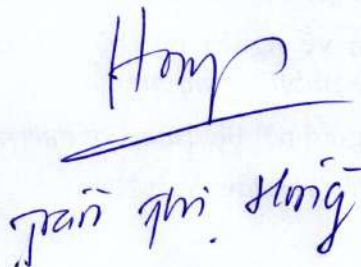 Hong
Trần Thị Hồng